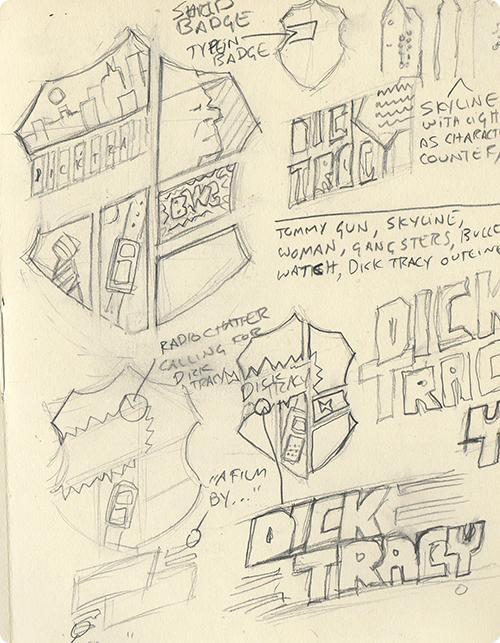 SHIELD
BADGE
TYPE IN
BADGE
DICK TRACY
BANG
DICK
TRACY
SKYLINE
WITH LIGHT
AS CHARACT
COUNTER,
TOMMY GUN, SKYLINE,
WOMAN, GANGSTERS, BULLE
WATCH, DICK TRACY OUTLINE
RADIO CHATTER
CALLING FOR
DICK
TRACY
DICK
TRACY
DICK
TRAC
Y
"A FILM
BY..."
DICK
TRACY